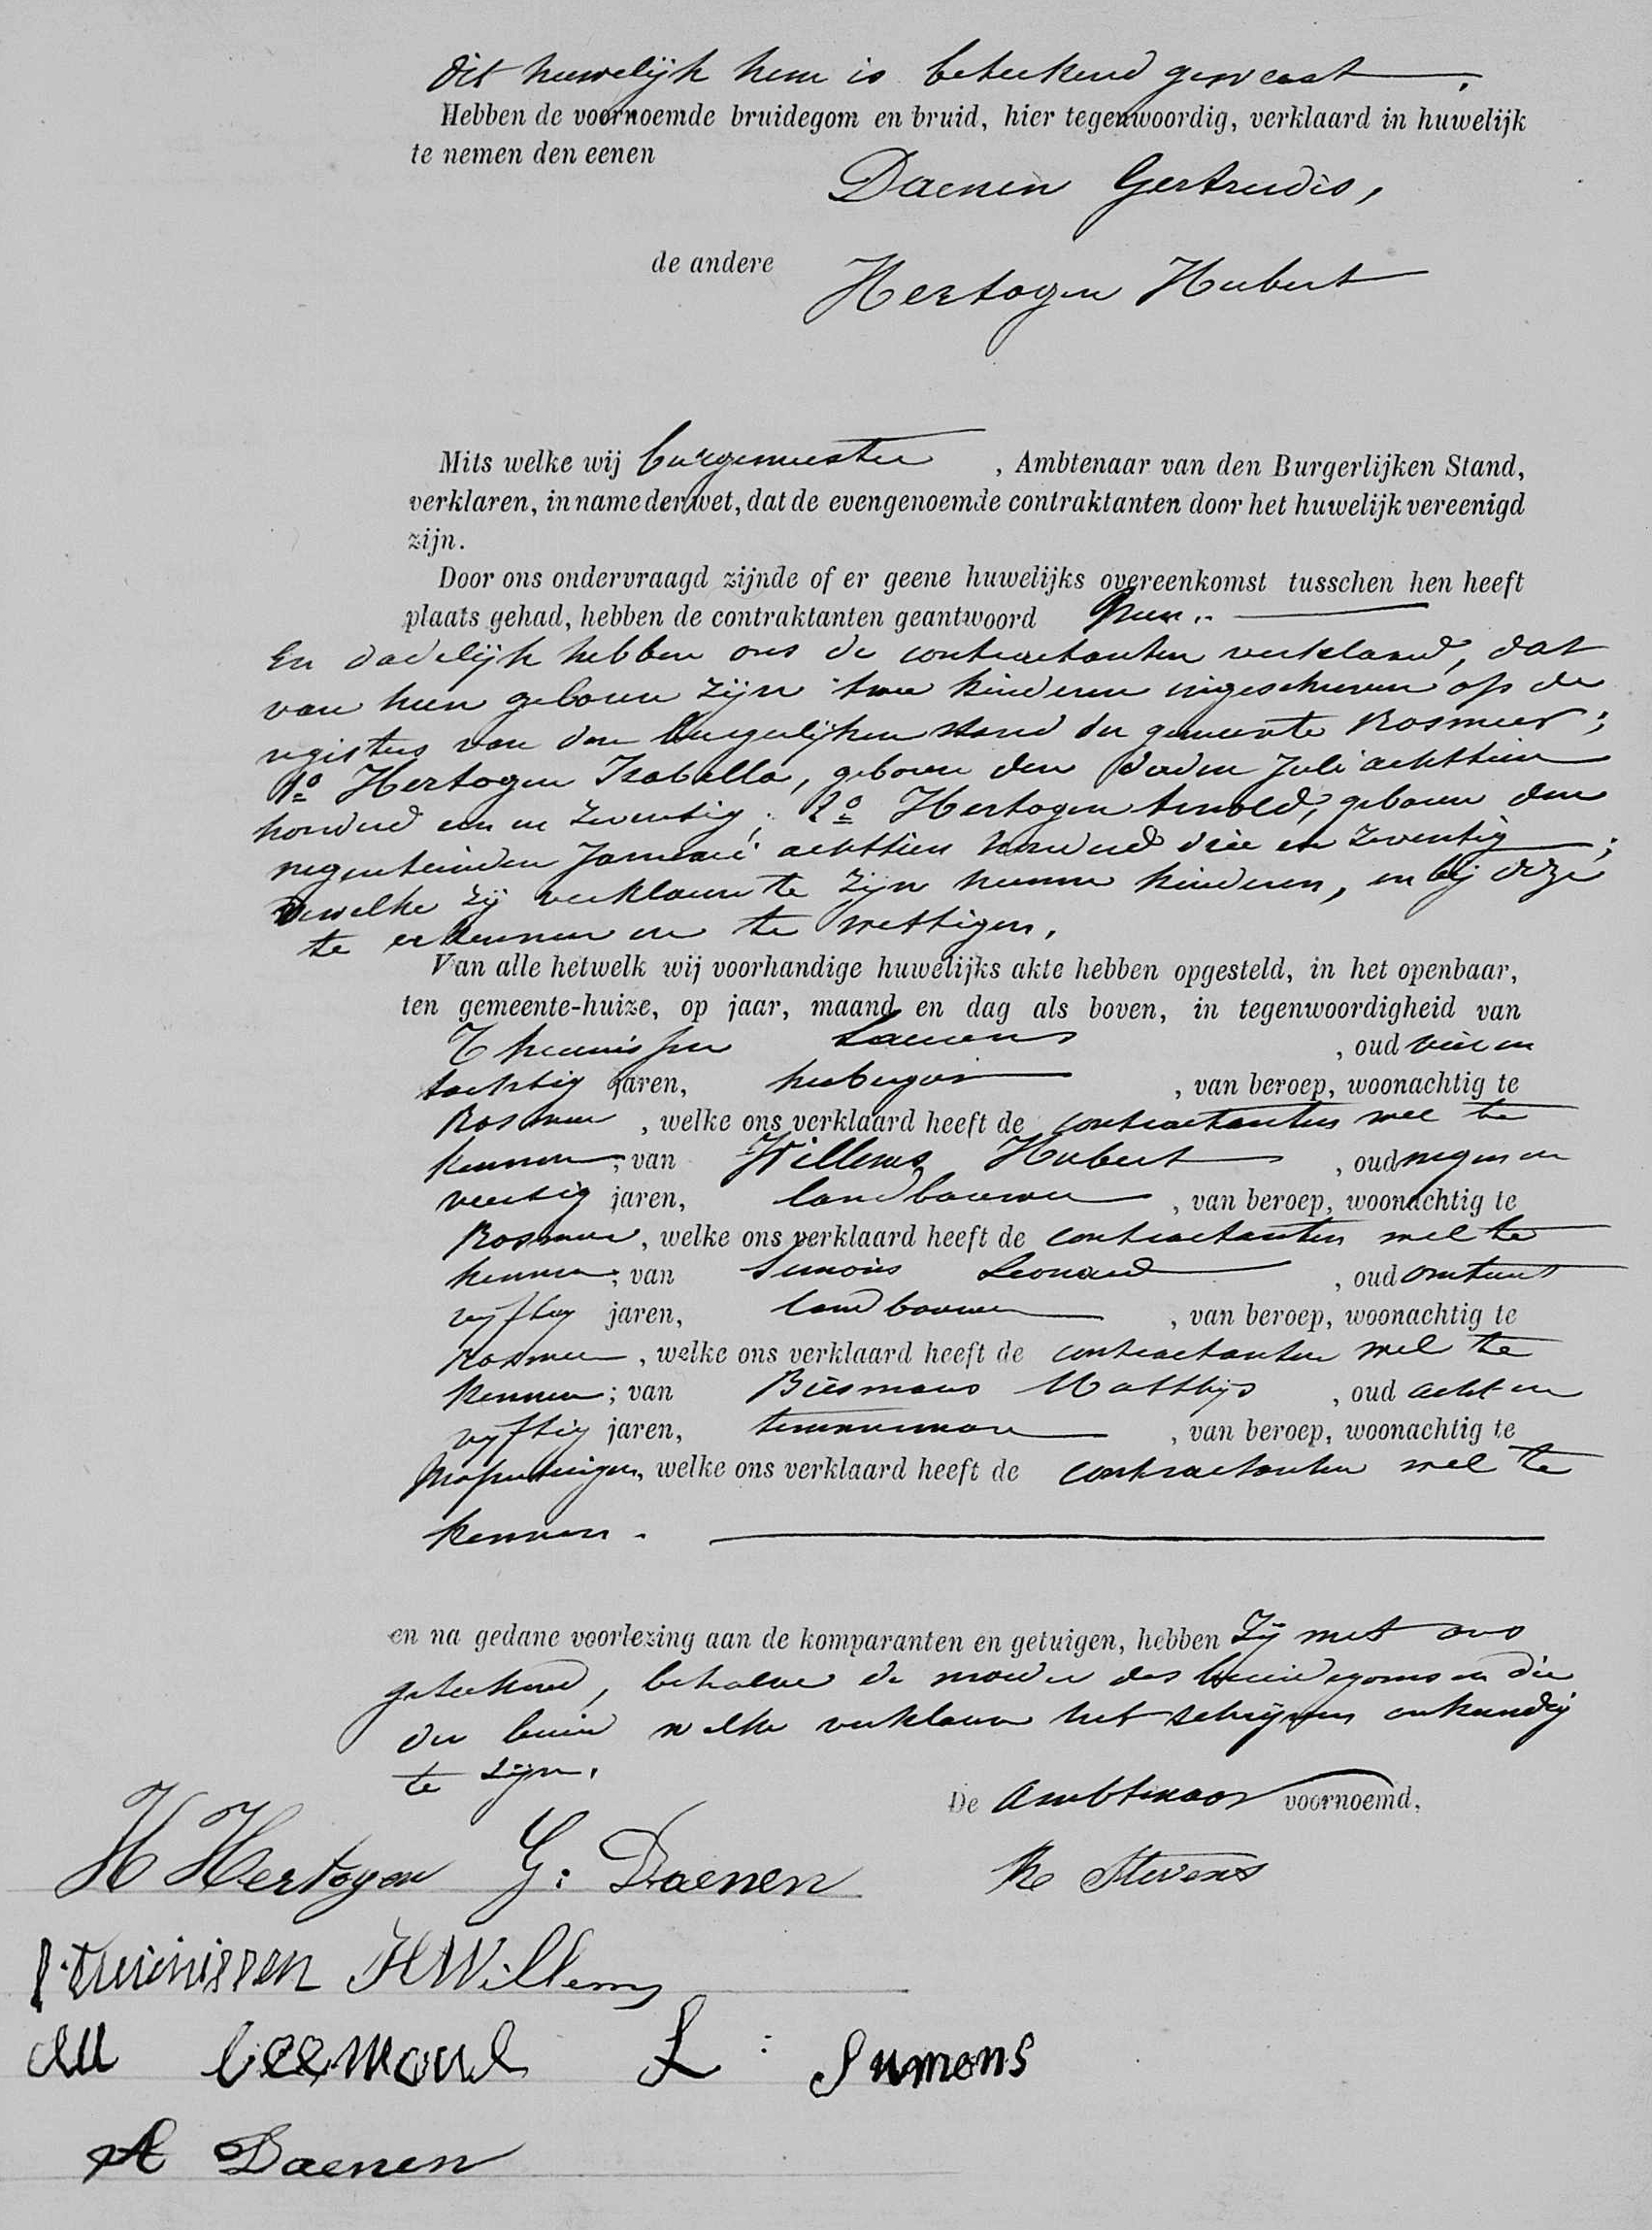 dit huwelijk hem is beteekend geweest.
Hebben de voornoemde bruidegom en bruid, hier tegenwoordig, verklaard in huwelijk
te nemen den eenen
Daenen Gertrudis,
de andere Hertogen Hubert
Mits welke wij burgemeester, Ambtenaar van den Burgerlijken Stand,
verklaren, in name der wet, dat de evengenoemde contraktanten door het huwelijk vereenigd
zijn.
Door ons ondervraagd zijnde of er geene huwelijks overeenkomst tusschen hen heeft
plaats gehad, hebben de contraktanten geantwoord Neen..
En dadelijk hebben ons de contractanten verklaard, dat
van hun geboren zijn twee kinderen ingeschreven op de
registers van den burgerlijken stand der gemeente Rosmeer;
1º Hertogen Isabella, geboren den derden Juli achttien
honderd een en zeventig; 2º Hertogen Arnold, geboren den
negentienden Januari achttien honderd drie en zeventig;
dewelke zij verklaren te zijn hunne kinderen, en bij deze
te erkennen en te wettigen.
Van alle hetwelk wij voorhandige huwelijks akte hebben opgesteld, in het openbaar,
ten gemeente-huize, op jaar, maand en dag als boven, in tegenwoordigheid van
Theunissen Laurens, oud vier en
tachtig jaren, herbergier, van beroep, woonachtig te
Rosmeer, welke ons verklaard heeft de contractanten wel te
kennen; van Willems Hubert, oud negen en
veertig jaren, landbouwer, van beroep, woonachtig te
Rosmeer, welke ons verklaard heeft de contractanten wel te
kennen; van Simons Leonard, oud omtrent
vijftig jaren, landbouwer, van beroep, woonachtig te
Rosmeer, welke ons verklaard heeft de contractanten wel te
kennen; van Biesmans Matthijs, oud acht en
vyftig jaren, timmerman, van beroep, woonachtig te
Mopertingen, welke ons verklaard heeft de contractanten wel te
kennen.
en na gedane voorlezing aan de komparanten en getuigen, hebben Zij met ons
geteekend, behalve de moeder des bruidegoms en die
der bruid welke verklaren het schrijven onkundig
te zijn.
De Ambtenaar voornoemd,
H Hertogen G: Daenen Stevens
HWillems
L: Sumons
A Daenen